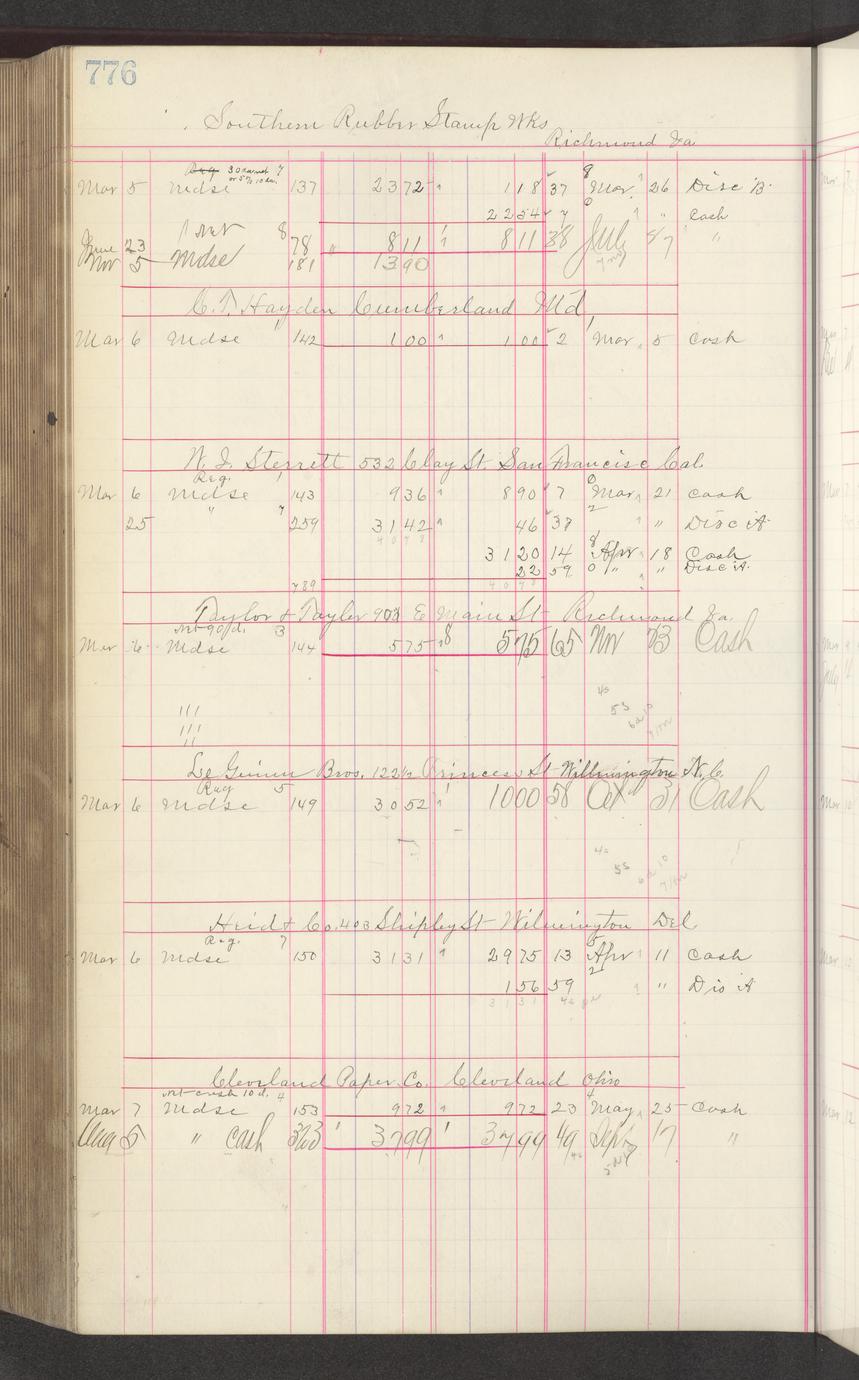 776
Southern Rubber Stamp Wks
Richmond Va
Reg 30 da net 7
or 5% 10 da.
Mar 5 Mdse 137 2372 118 37 Mar 26 Disc B.
2254 7 " Cash
Net 8
June 23 78 811 811 38 July 7 "
Nov 5 Mdse 181 1390
C. T. Hayden Cumberland Md.
Mar 6 Mdse 142 100 100 2 Mar 5 Cash
W. J. Sterrett 532 Clay St. San Francisc Cal.
Reg.
Mar 6 Mdse 143 936 890 7 Mar 21 Cash
25 " 259 3142 46 37 " Disc A
4078
3120 14 Apr 18 Cash
22 59 " " Disc A.
789 4078
Taylor & Taylor 903 E Main St Richmond Va.
Net 90 d. 3
Mar 6 Mdse 144 575 575 65 Nov 13 Cash
Le Guinn Bros. 122½ Princess St Wilmington N.C.
Reg 5
Mar 6 Mdse 149 3052 1000 58 Oct 31 Cash
Heid & Co. 403 Shipley St Wilmington Del
Reg. 7
Mar 6 Mdse 150 3131 2975 13 Apr 11 Cash
156 59 " Dis A
3131
Cleveland Paper Co. Cleveland Ohio
Net cash 10 d. 4
Mar 7 Mdse 153 972 972 23 May 25 Cash
Aug 5 " Cash 363 3799 3799 49 Sept 17 "